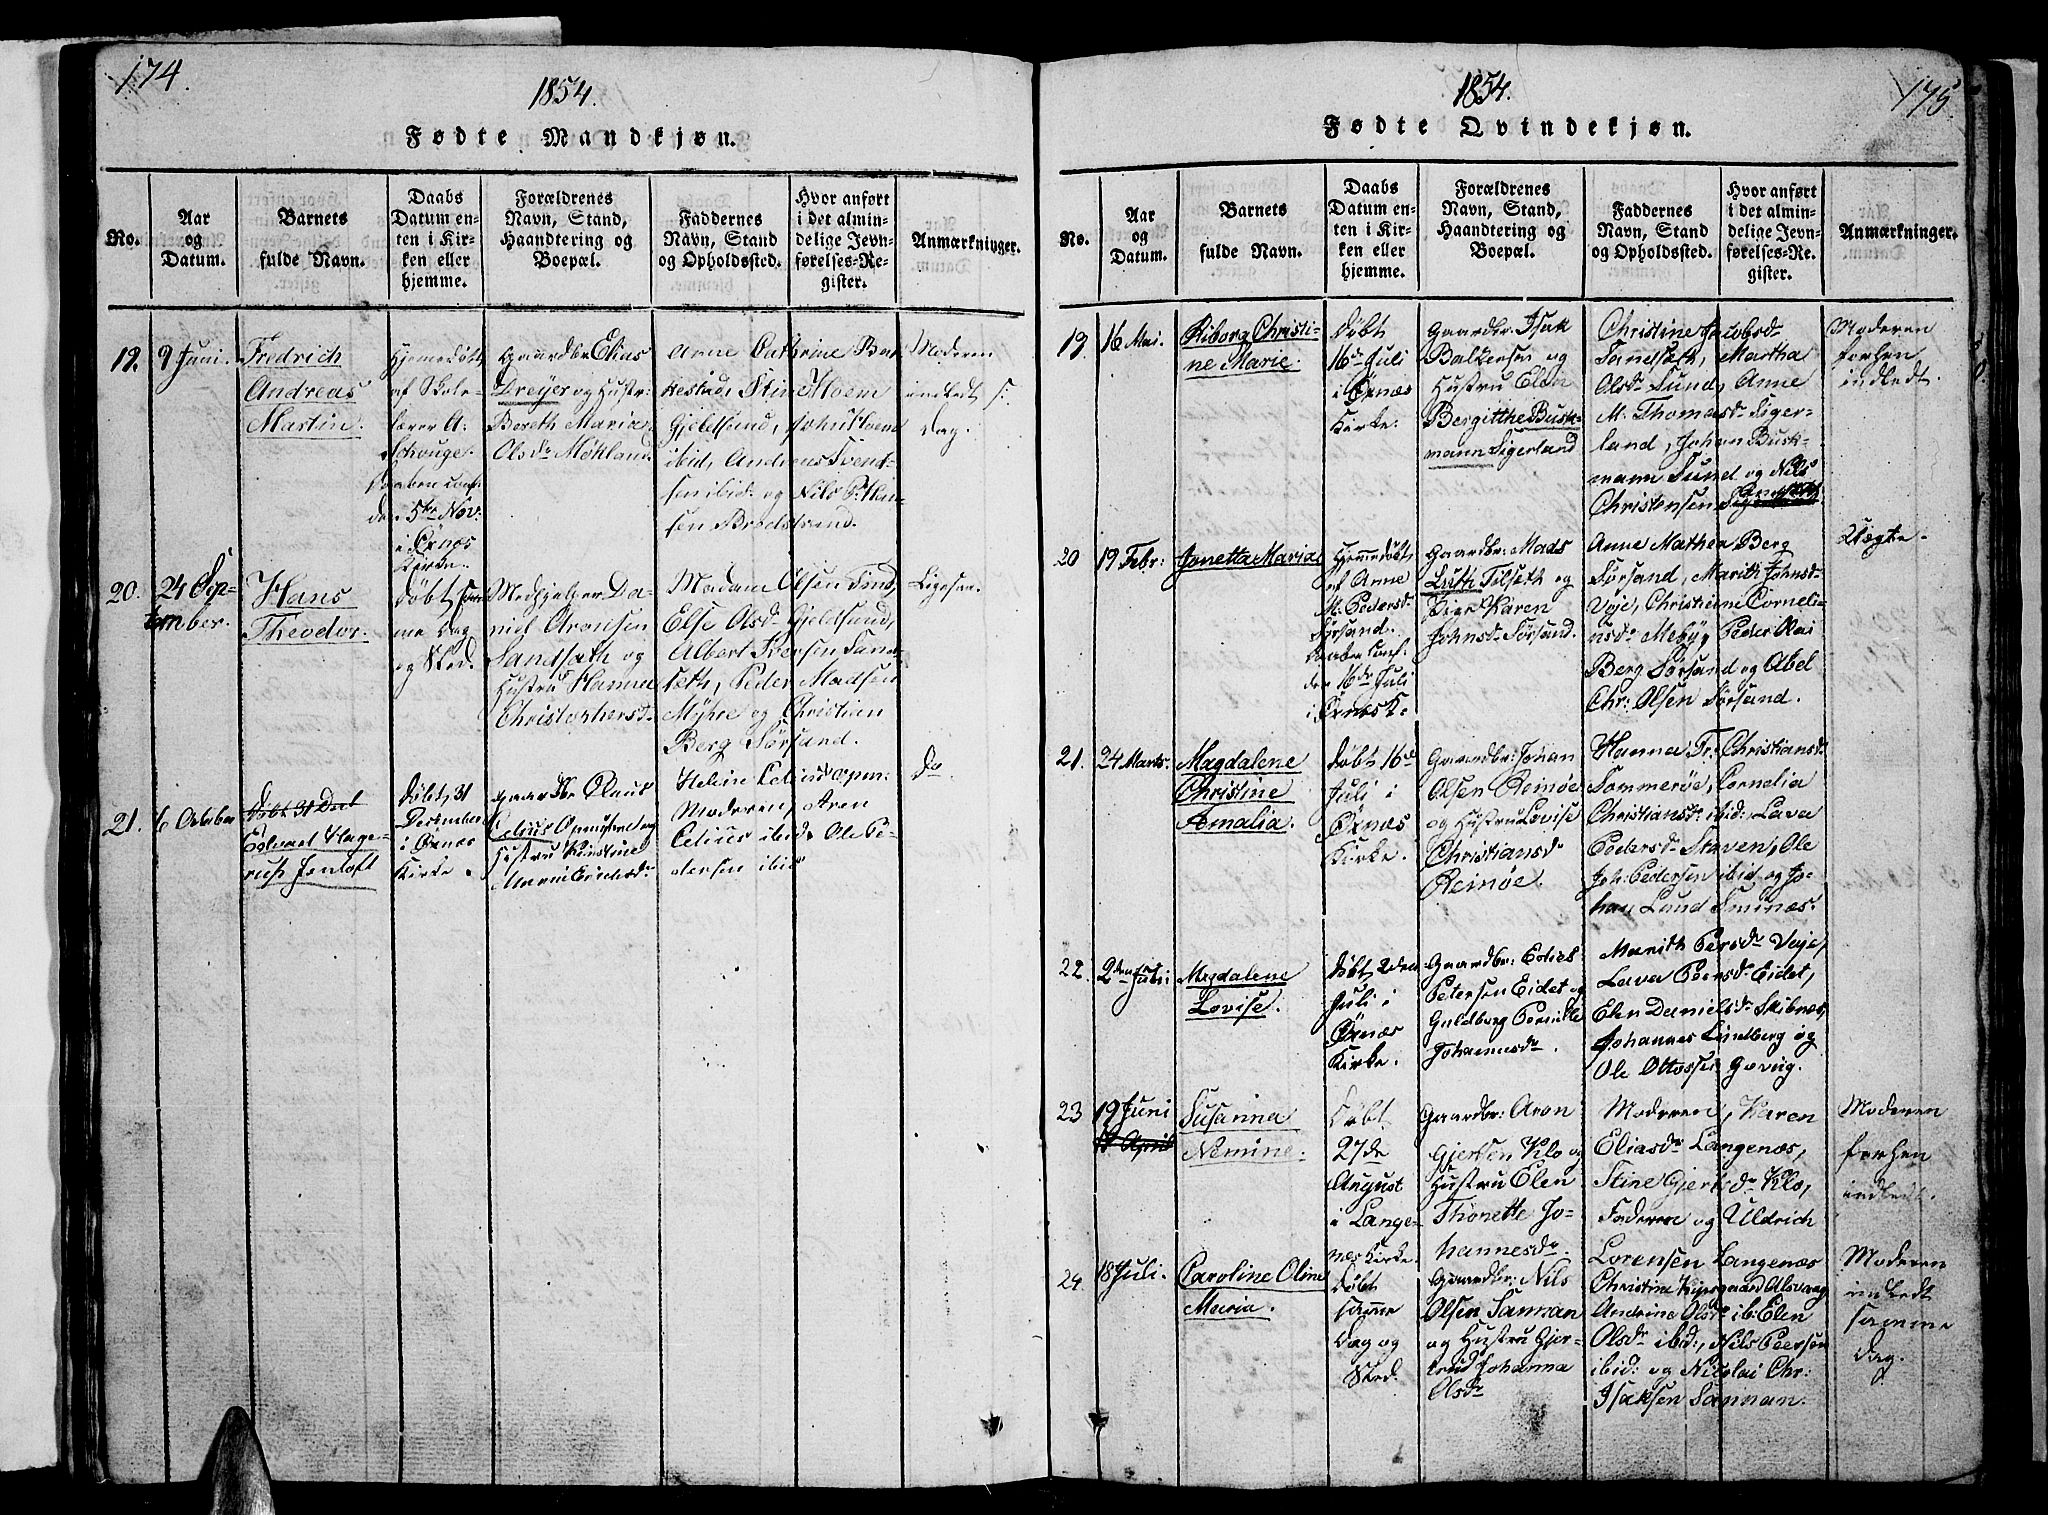 174.
1854.
Fødte Mandkjøn.
No.
Aar
og
Datum.
Barnets
fulde Navn.
Daabs
Datum en-
ten i Kir-
ken eller
hjemme.
Forældrenes
Navn, Stand,
Haandtering og
Boepæl.
Faddernes
Navn, Stand
og Opholdssted.
Hvor anført
i det almin-
delige Jevn-
førelses-Re-
gister.
Anmærkninger.
19.
9 Juni.
Fredrich
Andreas
Martin.
Hjemedøbt
af Skole-
lærer A.
Schouge.
Daaben conf.
den 5te Nov:
i Øxnæs
Kirke.
Gaardbr Elias
Dreyer og Hustr:
Bereth Maria
Olsdr Møkland.
Anne Cathrine Bak
kestad, Stine Moem
Gjeldsund, John Hoem
ibid, Andreas Svend-
sen ibid: og Nils P. Han-
sen Bredstrand.
Moderen
indledt s.
Dag.
20.
24 Sep-
tember.
Hans
Theodor.
Døbt sam-
me Dag
og Sted.
Medhjelper Da-
niel Aronsen
Sandsæth og
Hustru Hanna
Christophersdr
Madam Olsen Tind,
Else Olsdr Gjeldsund,
Albert Iversen Sand-
sæth, Peder Madsen
Myhre og Christian
Berg Sørsand.
Ligesaa.
21.
6 October
Døbt 31 Dect
Edvard Hage-
rup Jentoft
Døbt, 31
December
i Øxnæs
Kirke.
Gaardbr Claus
Celius
Hustru
Helene Celius
Moderen, Aren
Celius ibid: Ole Pe-
dersen ibid
Do
175.
1854.
Fødte Qvindekjøn.
No.
Aar
og
Datum.
Barnets
fulde Navn.
Daabs
Datum en-
ten i Kir-
ken eller
hjemme.
Forældrenes
Navn, Stand,
Haandtering og
Boepæl.
Faddernes
Navn, Stand
og Opholdssted.
Hvor anført
i det almin-
delige Jevn-
førelses-Re-
gister.
Anmærkninger.
19.
16 Mai.
Riborg Christi-
ne Marie.
Døbt
16de Juli
i Øxnæs
Kirke.
Gaardbr: Isak
Baltzersen og
Hustru Elen
Bergitthe Busk-
mann Sigerland
Christine Jacobsdr
Sandsæth, Martha
Olsdr Sund, Anne
M. Thomasdr Siger-
land, Johan Busk-
mann Sund og Nils
Christensen
Moderen
forhen
indledt.
20
19 Febr:
Jonetta Maria
Hjemedøbt
af Anne
M. Pedersdr
Sørsand.
Daaben conf.
den 16de Juli
i Øxnæs K.
Gaardbr: Mads
Luth Tilseth og
Pige Karen
Johnsdr Sørsand.
Anne Mathea Berg
Sørsand, Marith Johnsdr
Vøje, Christiane Corneli-
usdr Meby, Peder Nai
Berg Sørsand og Abel
Chr: Olsen Sørsand.
Uægte.
21.
24 Marts.
Magdalene
Christine
Amalia.
Døbt 16de
Juli i
Øxnæs
Kirke.
Gaardbr: Johan
Olsen Reinøe
og Hustru Lovise
Christiansdr
Reinøe.
Hanna Tr: Christiansdr
Sommerøe, Cornelia
Christiansdr ibid:, Lava
Pedersdr Staven, Ole
Joh: Pedersen ibid og Jo-
han Lund Sminæs.
22.
2den Juli:
Magdalene
Lovise.
Døbt 2den
Juli i
Øxnæs
Kirke.
Gaardbr: Edias
Petersen Eidet og
Guldborg Pernille
Johannesdr.
Marith Persdr Vaje,
Lava Peersdr Eidet,
Elen Danielsdr Skibnæs,
Johannes Lindberg og
Ole Ottossen Gaving.
23
19 Juni
18 April
Susanna
Nemine.
Døbt
27de
August
i Lange-
næs Kirke.
Gaardbr: Aron
Gjertsen Klo og
Hustru Elen
Thonette Jo-
hannesdr.
Moderen, Karen
Eliasdr Langenæs,
Stine Gjertsdr Klo,
Faderen og Uldrich
Lorensen Langenæs
Moderen
forhen
indledt.
24.
18 Juli.
Caroline Oline
Maria.
Døbt
samme
Dag og
Sted.
Gaardbr: Nils
Olsen Sannan
og Hustru Gjer-
trud Johanna
Olsdr
Christine Kjersgaard Alsvaag
Andrine Olsdr ib: Elen
Olsdr ibid:, Nils Peersen
ibid: og Nicolai Chr:
Isaksen Sannan.
Moderen
indledt
samme
Dag.